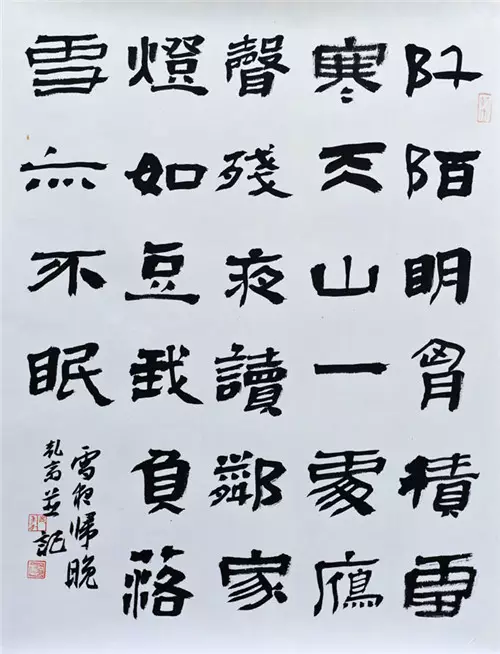 阡陌明胷積雪
寒天山一處鴈
聲殘夜讀鄰家
燈如豆我負落
雪亦不眠
雪夜歸晚
並記